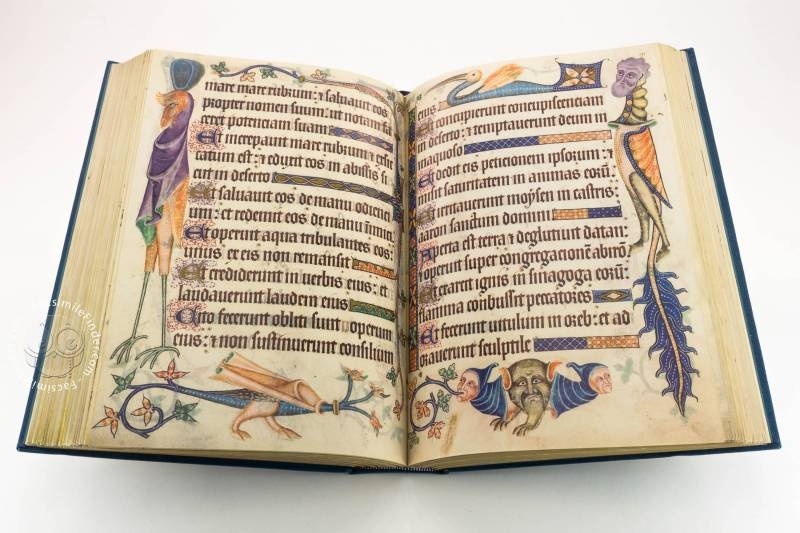 mare mare rubrum: ⁊ saluauit eos
propter nomen suum: ut notam fa
ceret potentiam suam
Et increpauit mare rubrum ⁊ exsic
catum est: ⁊ eduxit eos in abissis si
cut in deserto
Et saluauit eos de manu odienci
um: et redemit eos de manu inimici
Et operuit aqua tribulantes eos:
unus ex eis non remansit
Et crediderunt in uerbis eius: et
laudauerunt laudem eius
Cito fecerunt obliti sunt operum
eius: ⁊ non sustinuerunt consilium
eius
Et concupierunt concupiscenciam
in deserto: ⁊ temptauerunt deum in
inaquoso
Et dedit eis peticionem ipsorum: ⁊
misit saturitatem in animas eorum
Et irritauerunt moysen in castris:
aaron sanctum domini
Aperta est terra ⁊ deglutiuit datan:
⁊ operuit super congregacionem abiron
Et exarsit ignis in sinagoga eorum:
flamma combussit peccatores
Et fecerunt uitulum in oreb: et ad
orauerunt sculptile
FacsimileFinder.com